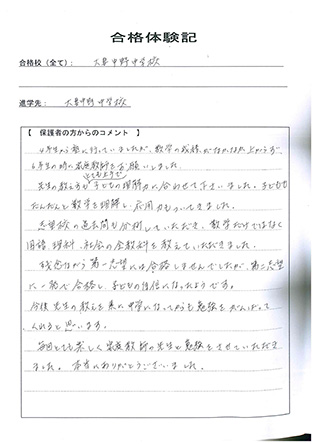 合格体験記
合格校（全て）： 大阜中野中学校
進学先： 大阜中野中学校
【 保護者の方からのコメント 】
4年生から塾に行っていましたが、数学の成績がなかなか上がらず
6年生の時に家庭教師をお願いしました。
とてもようず
先生の教え方も子どもの理解力に合わせて下さいました。子どもも
だんだんと数学を理解し応用力もついてきました。
志望校の過去問も分析していただき、数学だけではなく
国語、理科、社会の全教科を教えていただきました。
残念ながら第一志望には合格しませんでしたが、第二志望
に一発で合格し、子どもの自信になったようです。
今後先生の教えを基に中学になってからも勉強をがんばって
くれると思います。
毎回とても楽しく家庭教師の先生と勉強をさせていただき
ました。本当にありがとうございました。